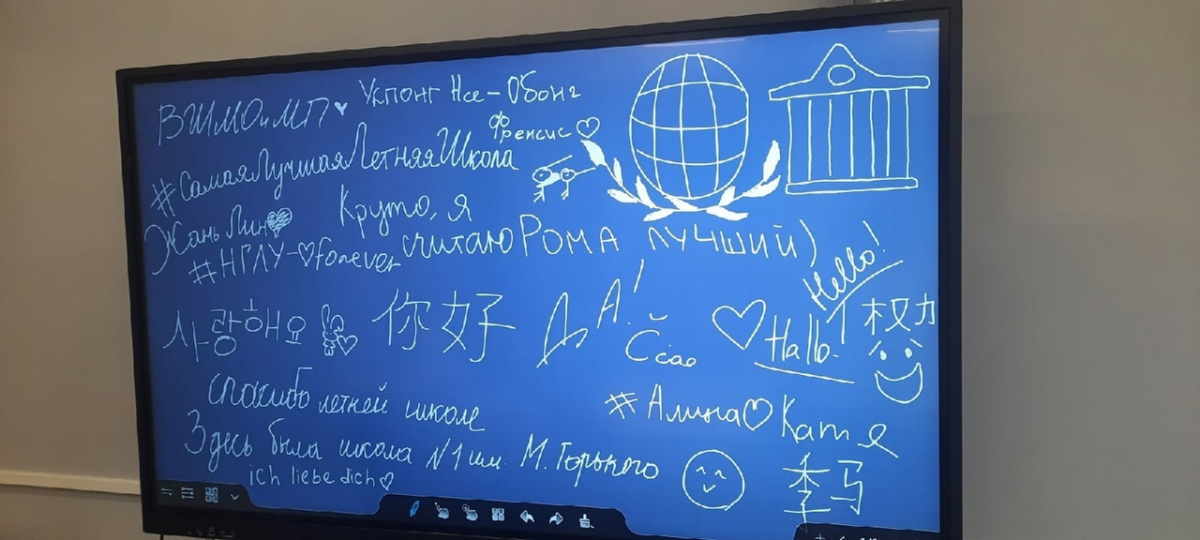 ВШМОиМП
Укпонг Нсе-Обонг
Френсис
#СамаяЛучшаяЛетняяШкола
Круто, я
считаю Рома лучший)
Жань Лин
#НГЛУ-forever
Hello!
사랑해요
你好
ДА!
Ciao
Hallo!
权力
спасибо летней школе
#Алина Катя
Здесь была школа №1 им. М. Горького
ich liebe dich
李马